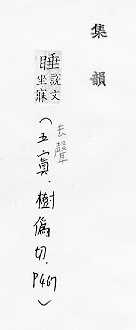 集韻
睡說文坐寐
去聲
(五寘.樹偽切.P467)